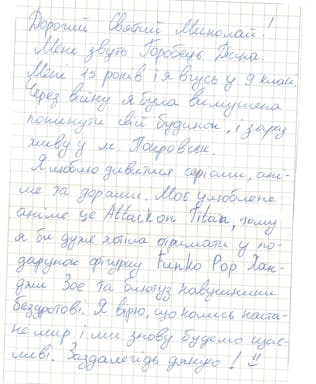 Дорогий Святий Миколай!
Мене звуть Горобець Діана.
Мені 15 років і я вчусь у 9 класі.
Через війну я була вимушена
покинути свій будинок, і зараз
живу у м. Покровськ.
Я люблю дивитися серіали, ані-
ме та дорами. Моє улюблене
аніме це Attack on Titan, тому
я би дуже хотіла отримати у по-
дарунок фігурку Funko Pop Хан-
джи Зое та блютуз навушники
бездротові. Я вірю, що колись наста-
не мир і ми знову будемо щас-
ливі. Заздалегідь дякую! :)